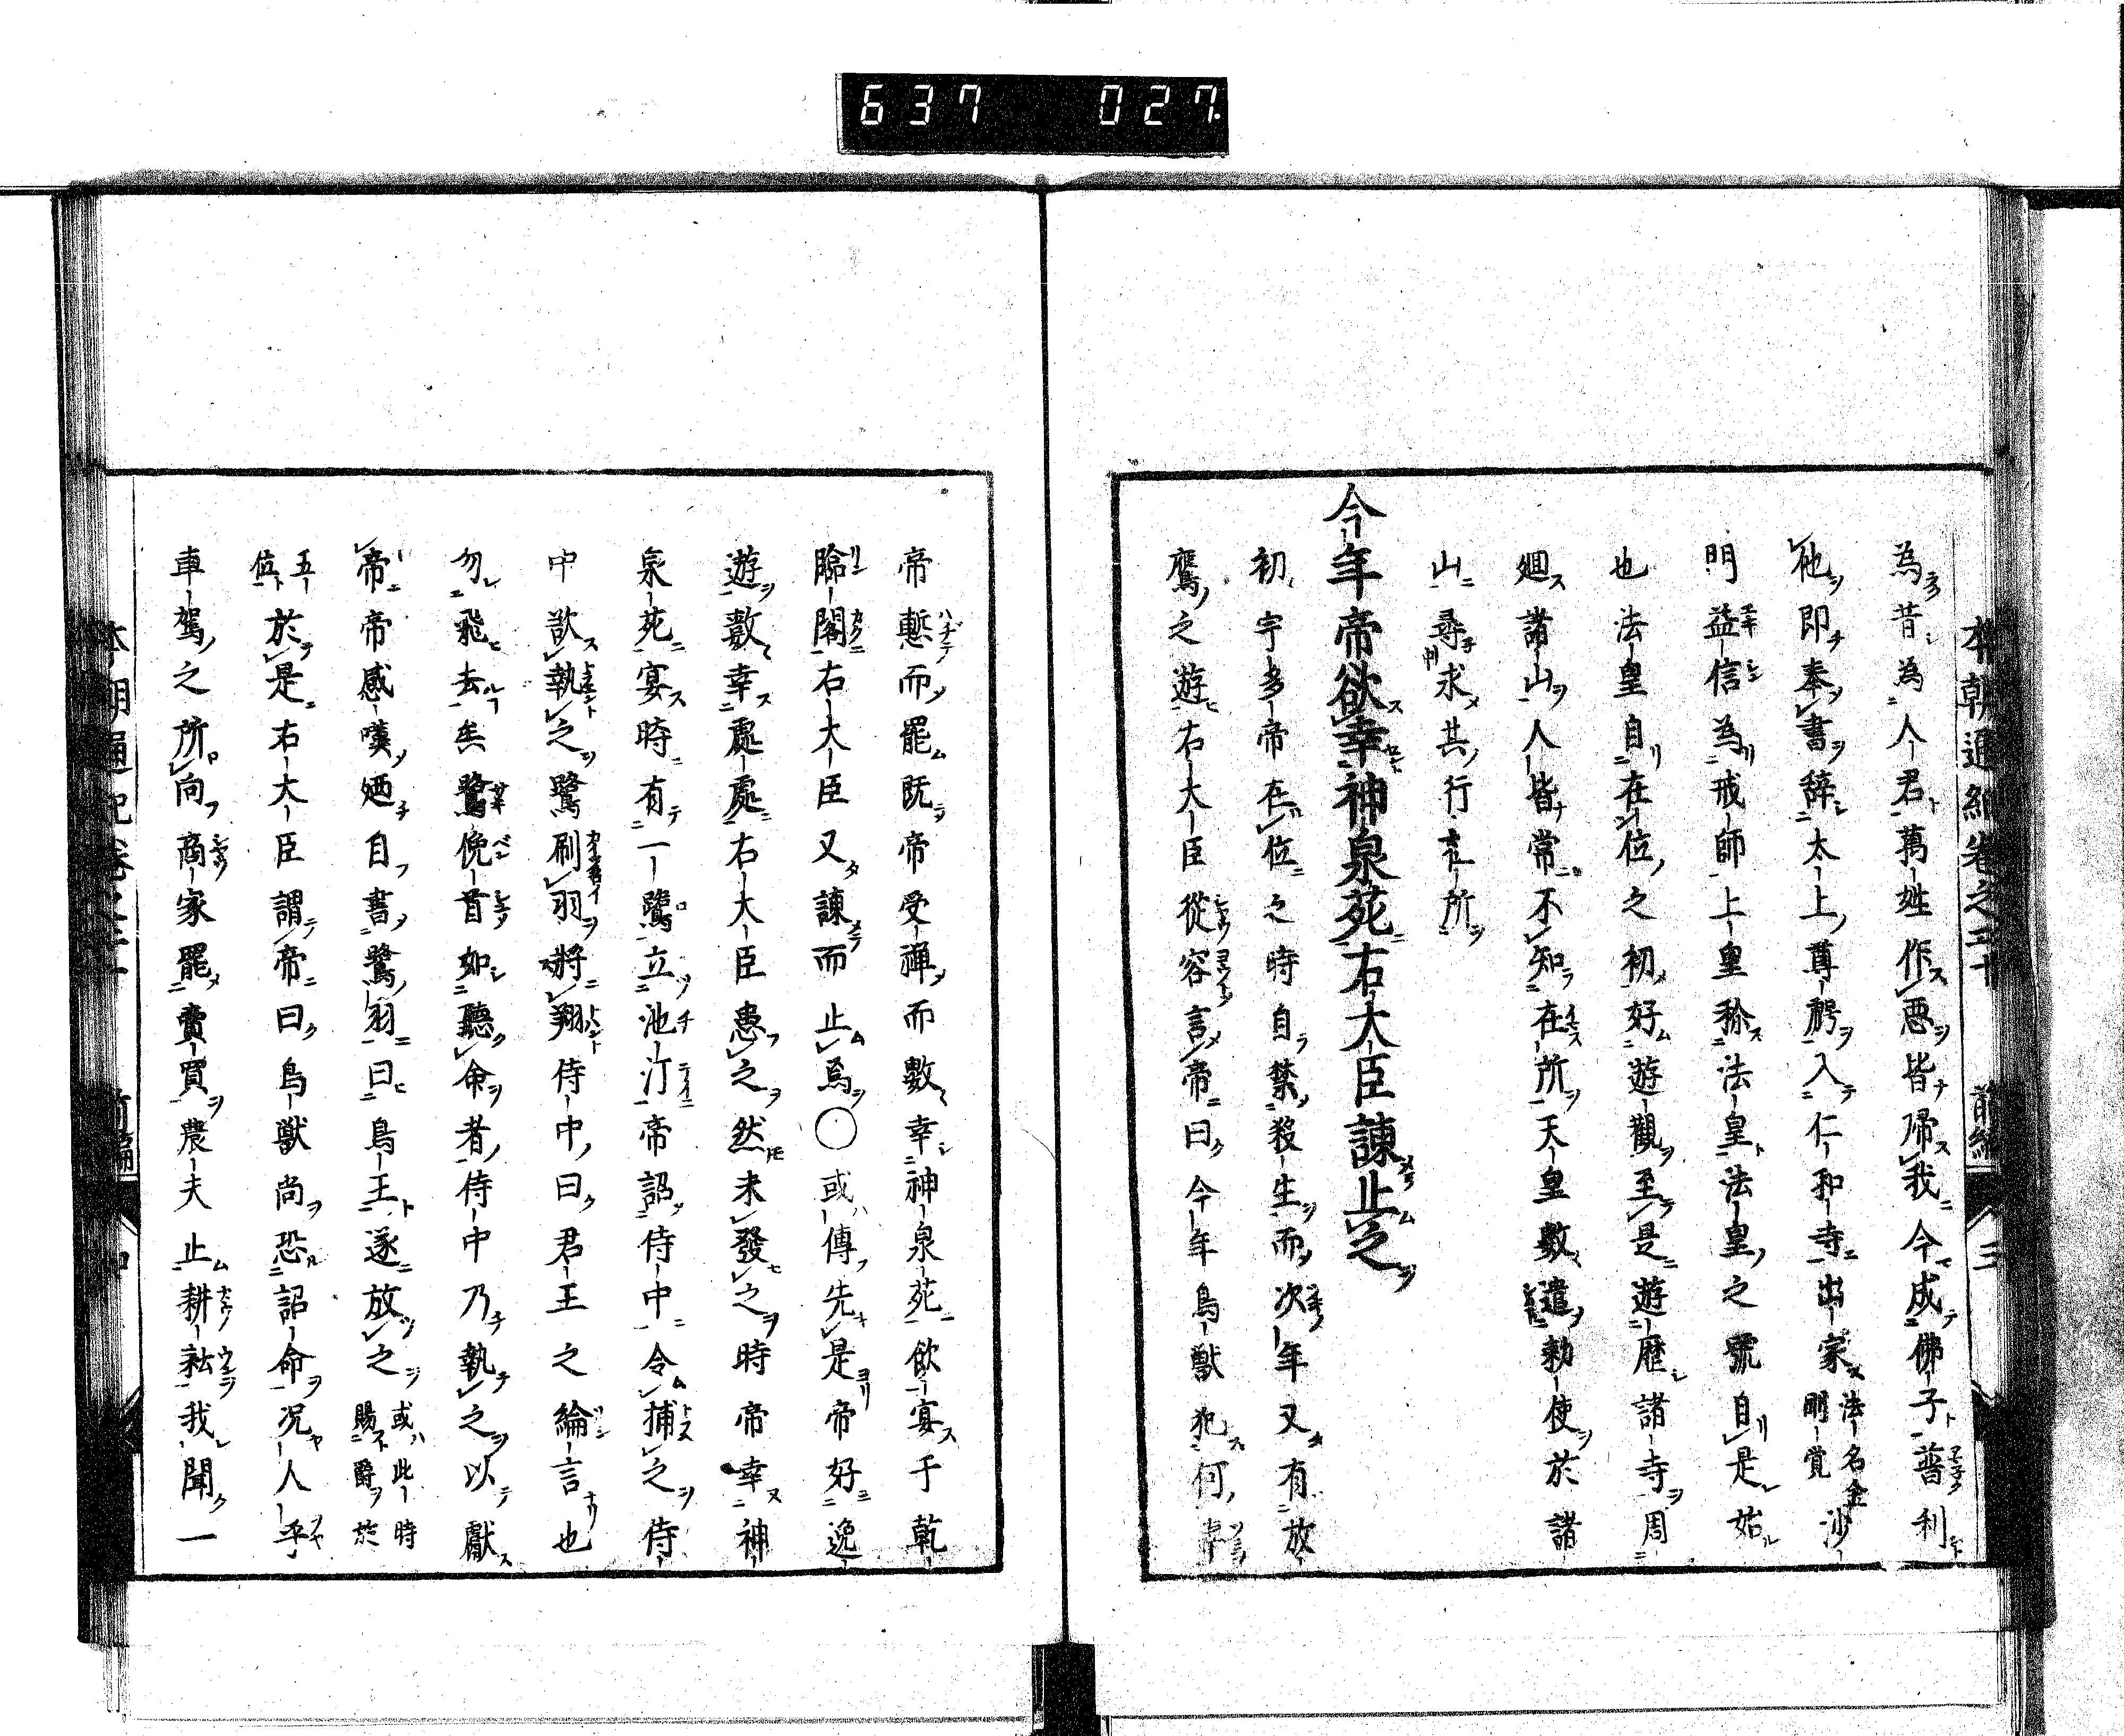 637 027
本朝通紀卷之二十 前編 三
為昔為人君萬姓作惡皆歸我今成佛子普利
他即奉書辭太上尊號入仁和寺出家法名金剛覺沙
門益信為戒師上皇稱法皇法皇之號自是始
也法皇自在位之初好遊觀至是遊歷諸寺周
廻諸山人皆常不知在所天皇數遣勅使於諸
山尋求其行在所
今年帝欲幸神泉苑右大臣諫止之
初宇多帝在位之時自禁殺生而次年又有放
鷹之遊右大臣從容言帝曰今年鳥獸犯何
帝慙而罷既帝受禪而數幸神泉苑飲宴于乾
臨閣右大臣又諫而止焉〇或傳先是帝好逸
遊數幸處處右大臣患之然未發之時帝幸神
泉苑宴時有一鷺立池汀帝詔侍中令捕之侍
中欲執之鷺刷羽將翔侍中曰君王之綸言也
勿飛去矣鷺俛首如聽命者侍中乃執之以獻
帝帝感嘆廼自書鷺羽曰鳥王遂放之或此時賜爵於
五位於是右大臣謂帝曰鳥獸尚恐詔命况人乎
車駕之所向商家罷賣買農夫止耕耘我聞一